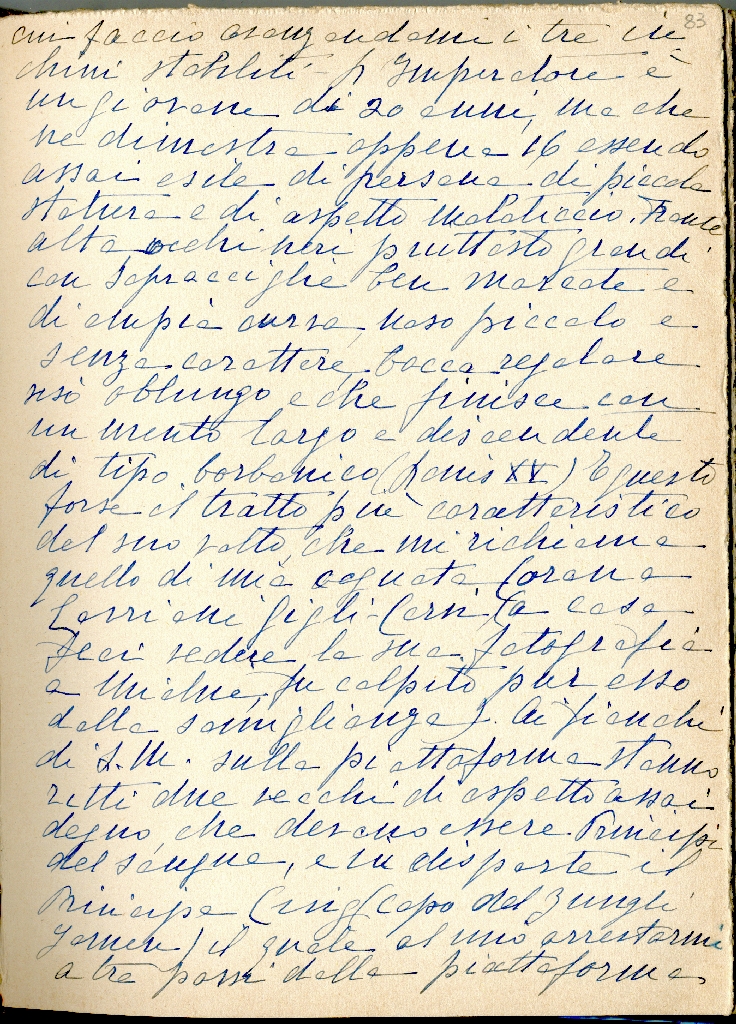 83
cui faccio avanzandomi i tre in
chini stabiliti - L'Imperatore è
un giovane di 20 anni, ma che
ne dimostra appena 16 essendo
assai esile di persona di piccola
statura e di aspetto malaticcio. Fronte
alta occhi neri piuttosto grandi
con sopracciglie ben marcate e
di ampia curva, naso piccolo e
senza carattere, bocca regolare
viso oblungo e che finisce con
un mento largo e discendente
di tipo borbonico (Louis XV) E questo
forse il tratto più caratteristico
del suo volto, che mi richiama
quello di mia cognata
Gigli-Cervi (a casa
feci vedere la sua fotografia
a Michel, fu colpito pur esso
dalla somiglianza). Ai fianchi
di S.M. sulla piattaforma stanno
ritti due vecchi di aspetto assai
degno, che devono essere Principi
del sangue, e in disparte il
Principe Cing (capo del Zungli
Yamen) il quale al mio arrestarmi
a tre passi dalla piattaforma